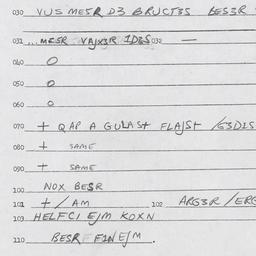 030 VUS MESR D3 GRUCT3S BES3R
031 ... MESR VAJX3R 1D3S 032 —
040 O
050 O
060 O
070 + QAP A GULASt FLAJSt /G3D1S
080 + SAME
090 + SAME
100 NOX BESR
101 + / AM 102 ARG3R / ERG
103 HELFCI EJM KOXN
110 BESR F1NEJM.